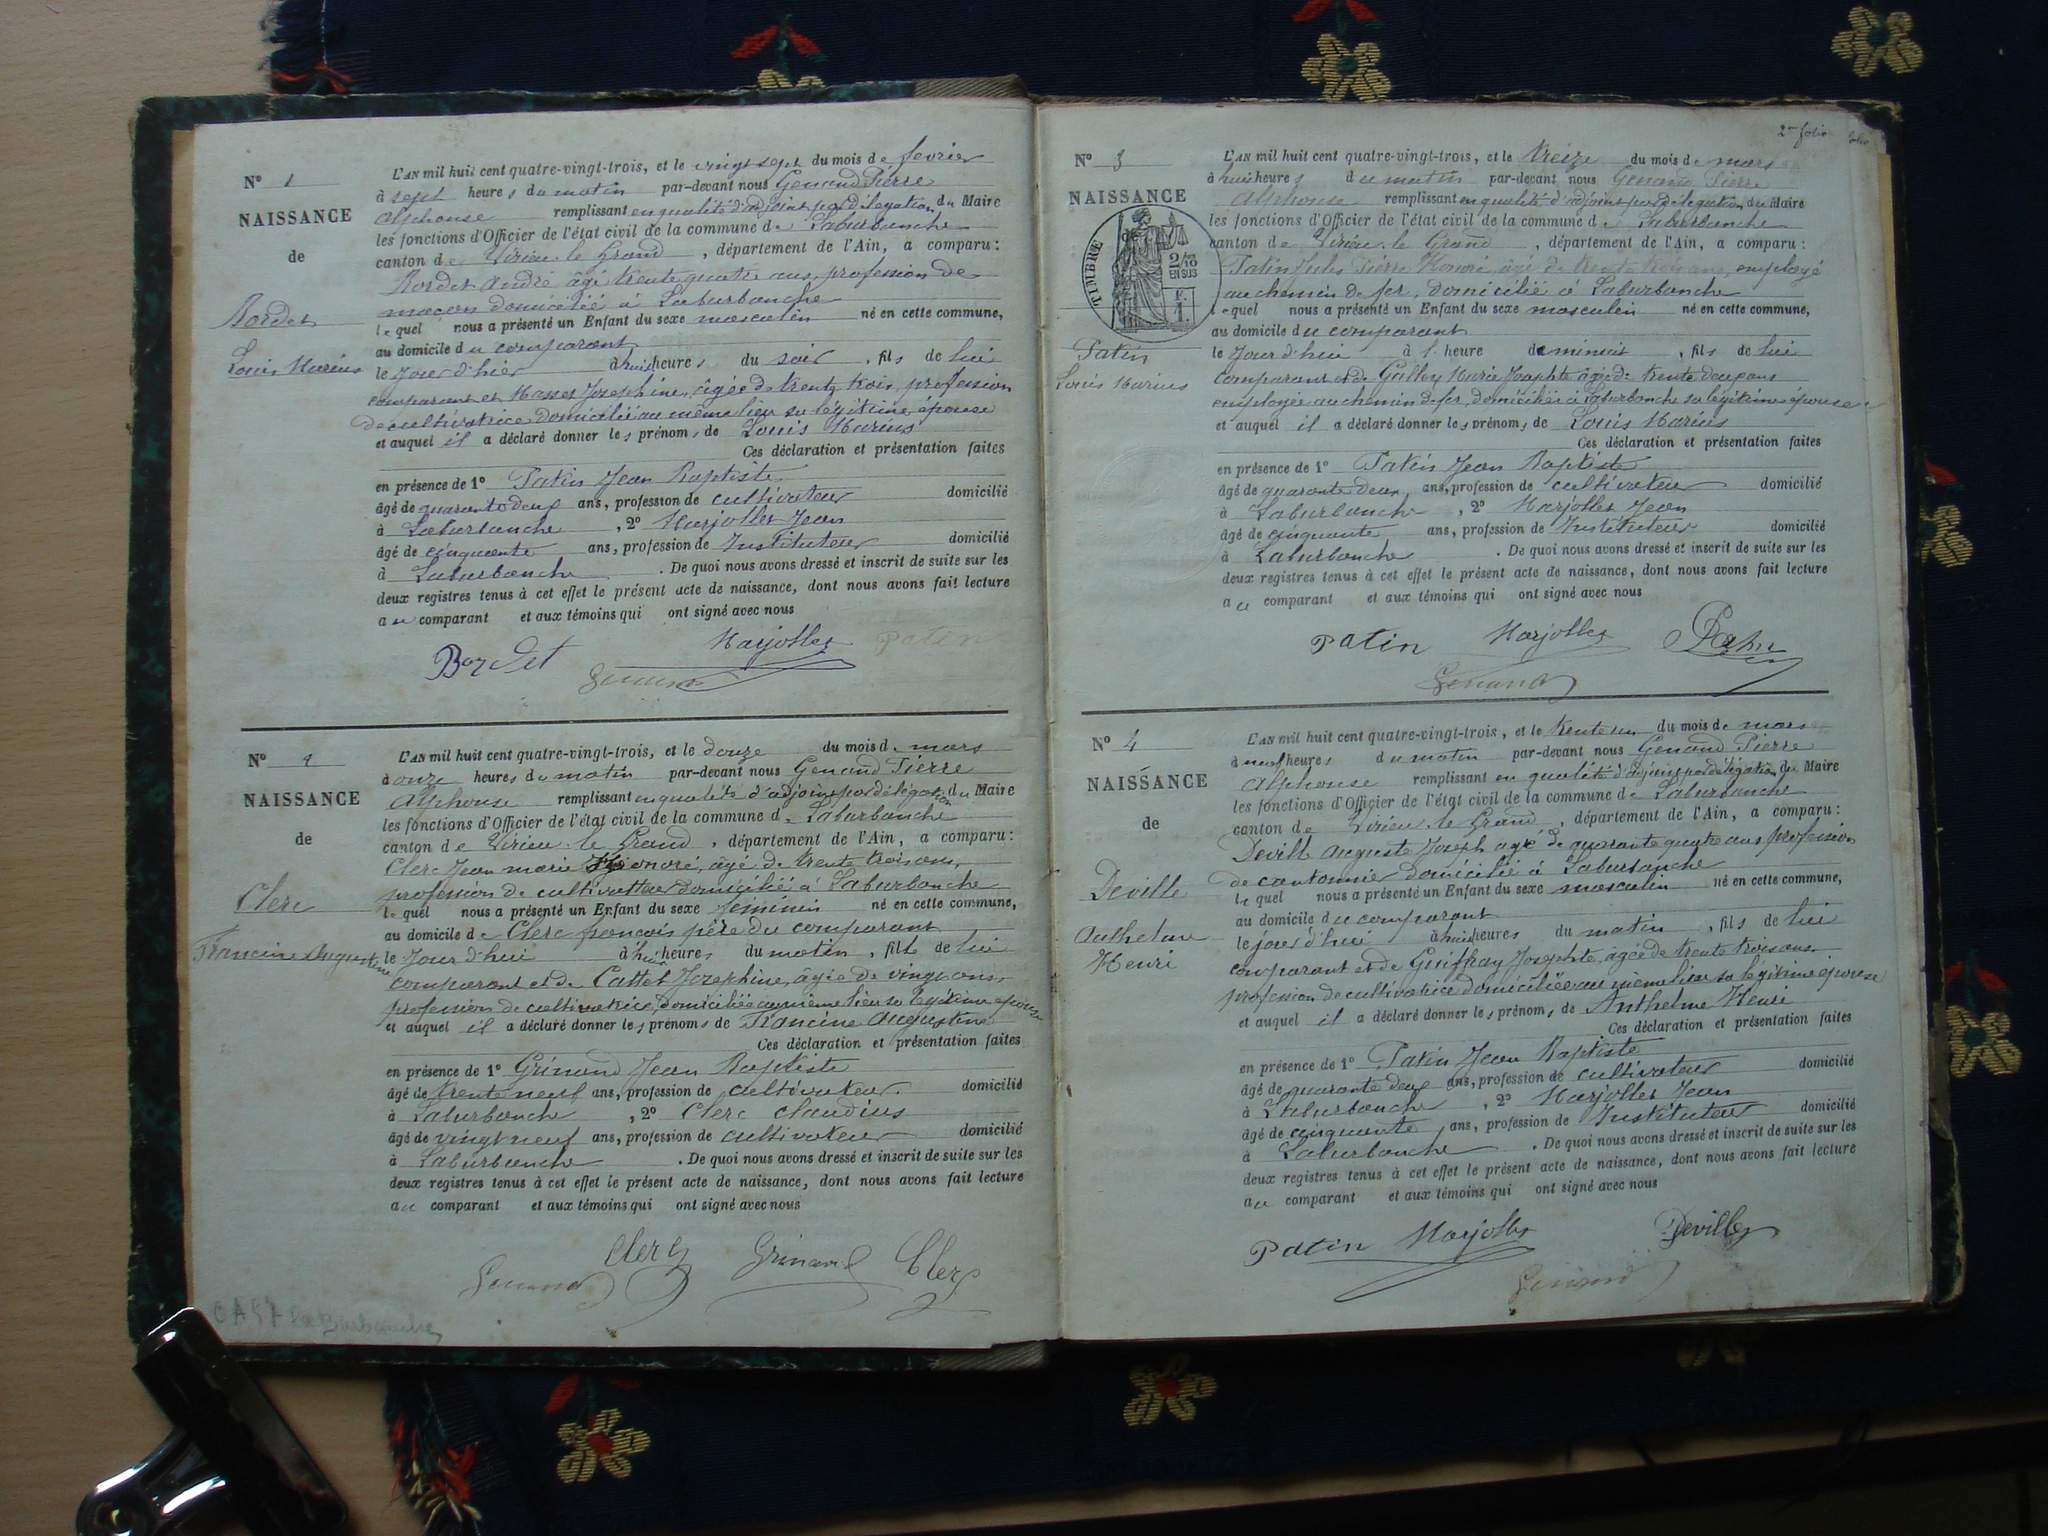 N° 1
NAISSANCE
de
Bordet
Louis Marius
L'AN mil huit cent quatre-vingt-trois, et le vingt sept du mois de février
à sept heures du matin par-devant nous Genand Pierre
Alphonse remplissant en qualité d'adjoint par délégation du Maire
les fonctions d'Officier de l'état civil de la commune de Laburbanche
canton de Virieu-le-Grand, département de l'Ain, a comparu:
Bordet André âgé trente quatre ans, profession de
maçon domicilié à Laburbanche
lequel nous a présenté un Enfant du sexe masculin né en cette commune,
au domicile du comparant
le jour d'hier à huit heures du soir, fils de lui
comparant et Masset Josephine, âgée de trente trois, profession
de cultivatrice domicilié au même lieu sa légitime épouse
et auquel il a déclaré donner les prénoms de Louis Marius
Ces déclaration et présentation faites
en présence de 1° Patin Jean Baptiste
âgé de quarante deux ans, profession de cultivateur domicilié
à Laburbanche, 2° Marjollet Jean
âgé de cinquante ans, profession de Instituteur domicilié
à Laburbanche. De quoi nous avons dressé et inscrit de suite sur les
deux registres tenus à cet effet le présent acte de naissance, dont nous avons fait lecture
au comparant et aux témoins qui ont signé avec nous
Bordet Marjollet Patin
Genand
N°
NAISSANCE
de
Clerc
Francine Augustine
L'AN mil huit cent quatre-vingt-trois, et le douze du mois de mars
à onze heures du matin par-devant nous Genand Pierre
Alphonse remplissant en qualité d'adjoint par délégation du Maire
les fonctions d'Officier de l'état civil de la commune de Laburbanche
canton de Virieu-le-Grand, département de l'Ain, a comparu:
Clerc Jean Marie honoré, âgé de trente trois ans,
profession de cultivateur domicilié à Laburbanche
lequel nous a présenté un Enfant du sexe féminin né en cette commune,
au domicile de Clerc françois père du comparant
le jour d'hui à huit heures du matin, fille de lui
comparant et de Cattet Josephine, âgée de vingt ans,
profession de cultivatrice, domiciliée au même lieu sa légitime épouse
et auquel il a déclaré donner les prénoms de Francine Augustine
Ces déclaration et présentation faites
en présence de 1° Grinand Jean Baptiste
âgé de trente neuf ans, profession de cultivateur domicilié
à Laburbanche, 2° Clerc Claudius
âgé de vingt neuf ans, profession de cultivateur domicilié
à Laburbanche. De quoi nous avons dressé et inscrit de suite sur les
deux registres tenus à cet effet le présent acte de naissance, dont nous avons fait lecture
au comparant et aux témoins qui ont signé avec nous
Clerc Grinand Clerc
Genand
La Burbanche
2me folio
N° 3
NAISSANCE
de
TIMBRE
2/10
EN SUS
Patin
Louis Marius
L'AN mil huit cent quatre-vingt-trois, et le treize du mois de mars
à huit heures du matin par-devant nous Genand Pierre
Alphonse remplissant en qualité d'adjoint par délégation du Maire
les fonctions d'Officier de l'état civil de la commune de Laburbanche
canton de Virieu-le-Grand, département de l'Ain, a comparu:
Patin Jules Pierre Honoré, âgé de trente trois ans, employé
au chemin de fer, domicilié à Laburbanche
lequel nous a présenté un Enfant du sexe masculin né en cette commune,
au domicile du comparant
le jour d'hui à l'heure de minuit, fils de lui
comparant et de Galley Marie Josephte âgée de trente deux ans
employée au chemin de fer, domiciliée à Laburbanche sa légitime épouse
et auquel il a déclaré donner les prénoms de Louis Marius
Ces déclaration et présentation faites
en présence de 1° Patin Jean Baptiste
âgé de quarante deux ans, profession de cultivateur domicilié
à Laburbanche, 2° Marjollet Jean
âgé de cinquante ans, profession de Instituteur domicilié
à Laburbanche. De quoi nous avons dressé et inscrit de suite sur les
deux registres tenus à cet effet le présent acte de naissance, dont nous avons fait lecture
au comparant et aux témoins qui ont signé avec nous
Patin Marjollet Patin
Genand
N° 4
NAISSANCE
de
Deville
Anthelme
Henri
L'AN mil huit cent quatre-vingt-trois, et le trente un du mois de mars
à neuf heures du matin par-devant nous Genand Pierre
Alphonse remplissant en qualité d'adjoint par délégation du Maire
les fonctions d'Officier de l'état civil de la commune de Laburbanche
canton de Virieu-le-Grand, département de l'Ain, a comparu:
Deville Auguste Joseph agé de quarante quatre ans profession
de cantonnier domicilié à Laburbanche
lequel nous a présenté un Enfant du sexe masculin né en cette commune,
au domicile du comparant
le jour d'hui à huit heures du matin, fils de lui
comparant et de Guiffray Josephte, âgée de trente trois ans
profession de cultivatrice domiciliée au même lieu sa légitime épouse
et auquel il a déclaré donner les prénoms de Anthelme Henri
Ces déclaration et présentation faites
en présence de 1° Patin Jean Baptiste
âgé de quarante deux ans, profession de cultivateur domicilié
à Laburbanche, 2° Marjollet Jean
âgé de cinquante ans, profession de Instituteur domicilié
à Laburbanche. De quoi nous avons dressé et inscrit de suite sur les
deux registres tenus à cet effet le présent acte de naissance, dont nous avons fait lecture
au comparant et aux témoins qui ont signé avec nous
Patin Marjollet Deville
Genand